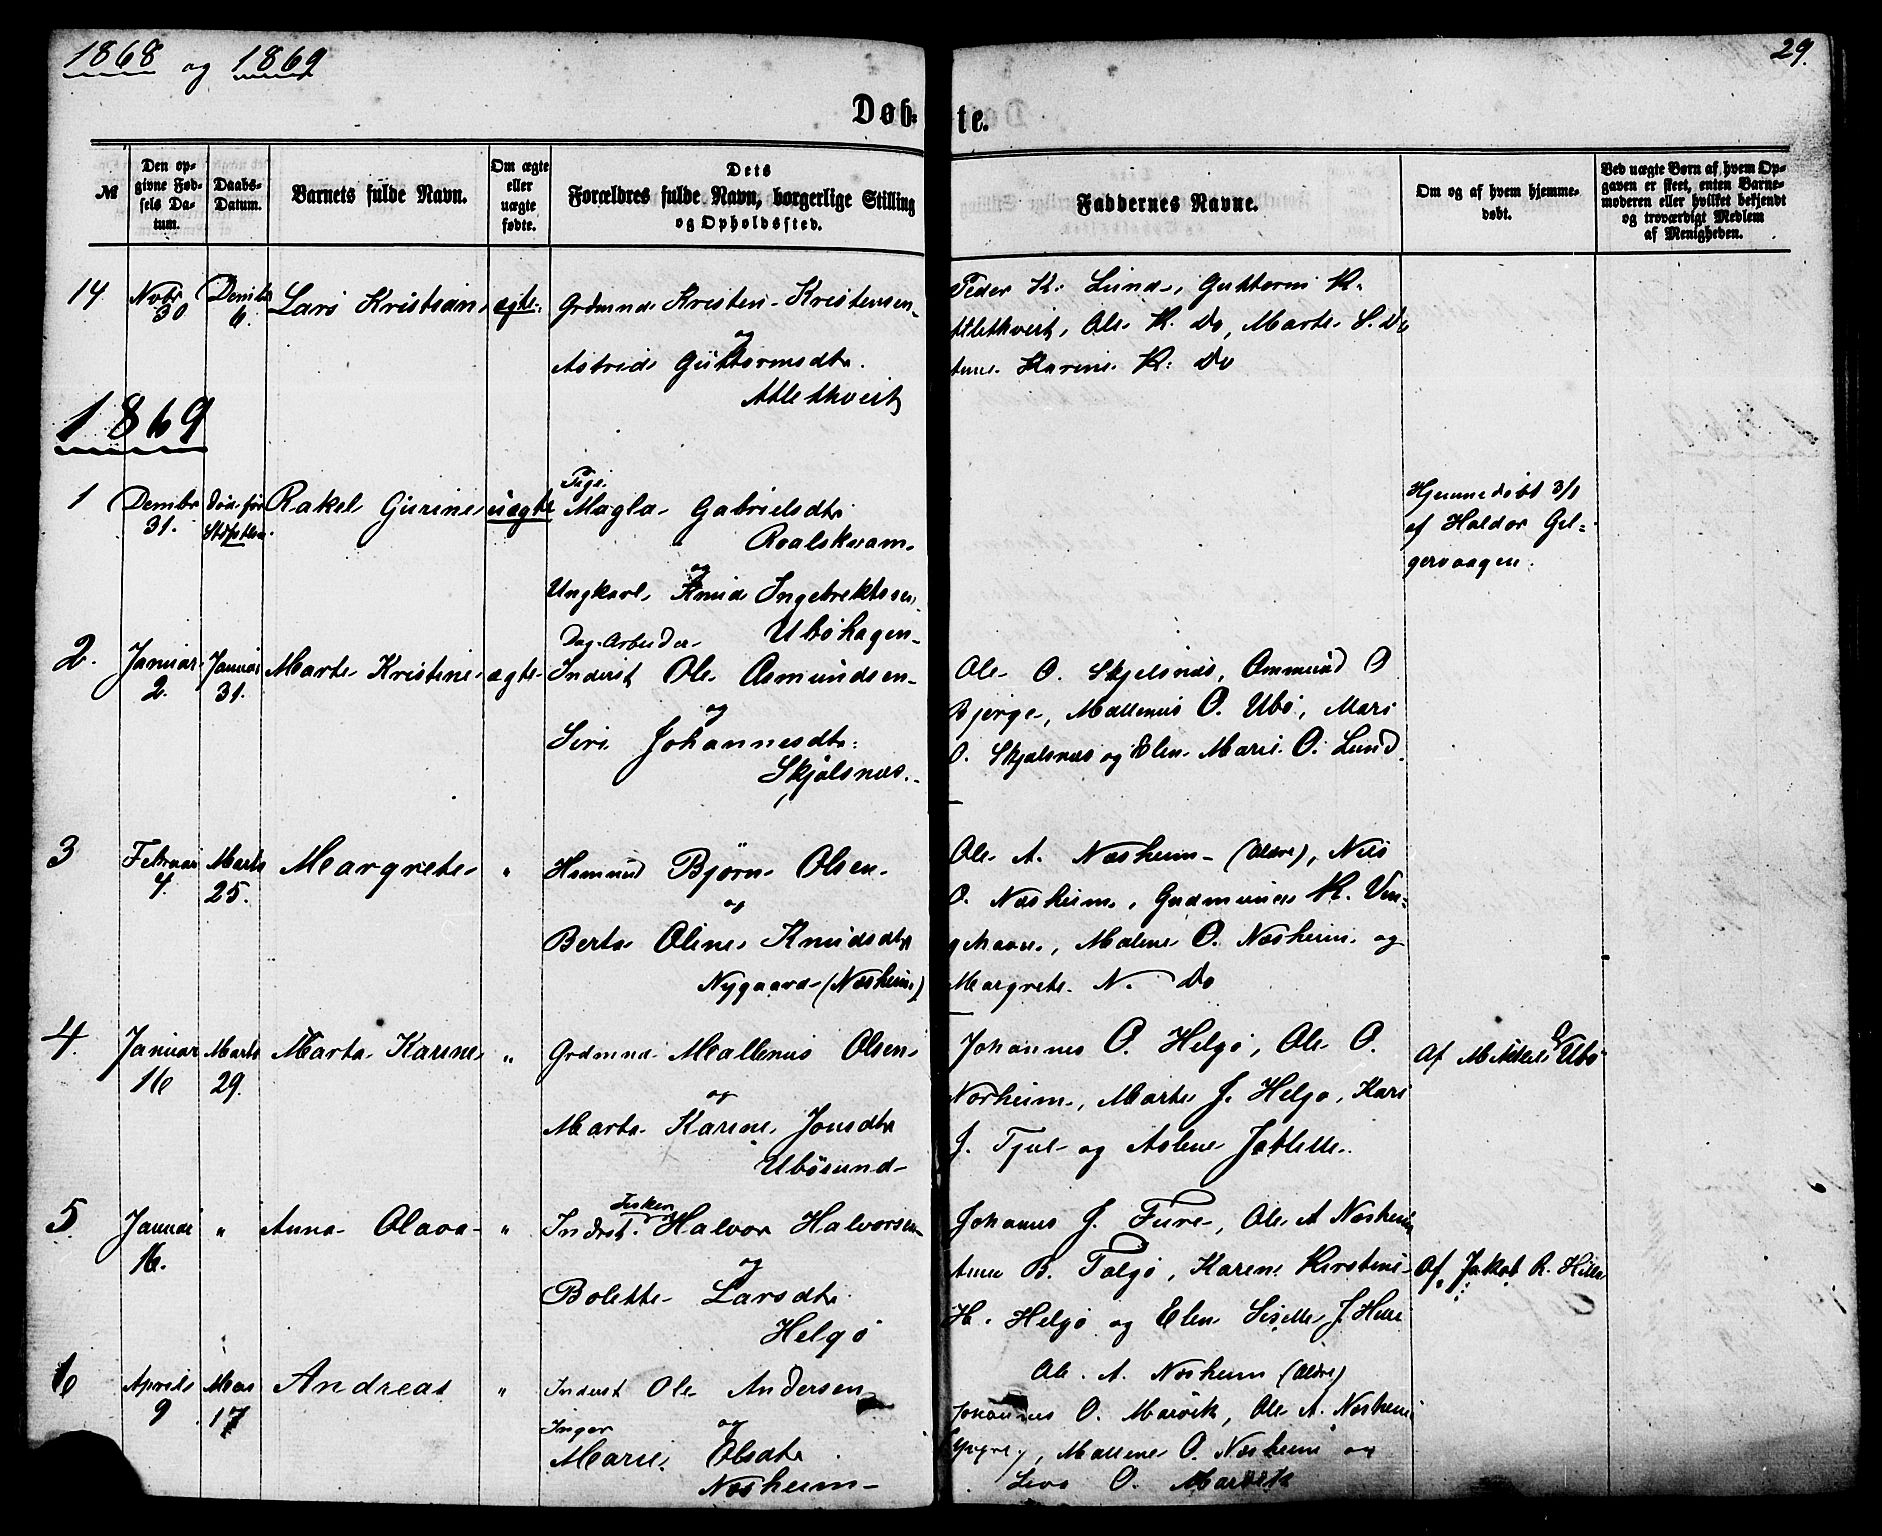 1868 og 1869
29.
Døb- te.
№
Den op-
givne Fød-
sels Da-
tum.
Daabs-
Datum.
Barnets fulde Navn.
Om ægte
eller
uægte
fødte.
Dets
Forældres fulde Navn, borgerlige Stilling
og Opholdssted.
Faddernes Navne.
Om og af hvem hjemme-
døbt.
Ved uægte Børn af hvem Op-
gaven er skeet, enten Barne-
moderen eller hvilket bekjendt
og troværdigt Medlem
af Menigheden.
14
Nvbr
30
Dembr
6.
Lars Kristian
ægte
Grdmnd Kristen Kristensen
og
Astrid Guttormsdtr.
Atlethveit
Peder K. Lund, Guttorm K.
Atlethveit, Ole K. Do, Marte S. Do
Anne Karine K. Do
1869
1
Dembr
31.
Død før
Rakel Gurine
uægte
Pige
Magla Gabrielsdtr
Roalskvam
og
Ungkarl Knud Ingebrektsen
Ubøhagen
Hjemmedøbt 3/1
af Haldor Gel-
gervaagen.
2.
Januar
2.
Januar
31.
Marte Kristine
ægte
Dag-Arbeider
Inderst Ole Asmundsen
og
Siri Johannesdtr.
Skjølsnæs.
Ole O. Skjelsnæs, Ommund O
Bjerge, Mallenus O. Ubø, Mari
O. Skjølsnæs og Elen Marie O. Lund.
3
Februar
4.
Marts
25.
Margrete
"
Husmnd Bjørn Olsen
og
Berta Oline Knudsdtr
Nygaard (Næsheim)
Ole A. Næsheim (Ældre), Nils
O. Næsheim, Gudmund K. Ven-
, Malene O. Næsheim og
Margrete N. Do
4.
Januar
16
Marts
29.
Marta Karine
"
Grdmnd Mallenus Olsen
og
Marta Karine Jonsdtr
Ubøsund
Johannes O. Helgø, Ole O.
Norheim, Marte J. Helgø, Kari
J. Tjul og Aslene Jatlelle.
Af Ubø
5
Januar
16.
"
Anna Olava
"
Fisker
Inderst Halvor Halvorsen
og
Bolette Larsdtr
Helgø
Johannes J. Fure, Ole A Næsheim
Anne B. Talgø, Karen Kirstine
H. Helgø og Elen Siselle J. Hille
Af Jakob R. Hille
6
Aprils
9
Mai
17
Andreas
"
Inderst Ole Andersen
og
Inger
Marie Olsdtr
Næsheim
Ole A. Næsheim (Ældre)
Johannes O. Marvik, Ole A. Næsheim
(Yngre), Mallene O. Næsheim og
Siva O. Marvik